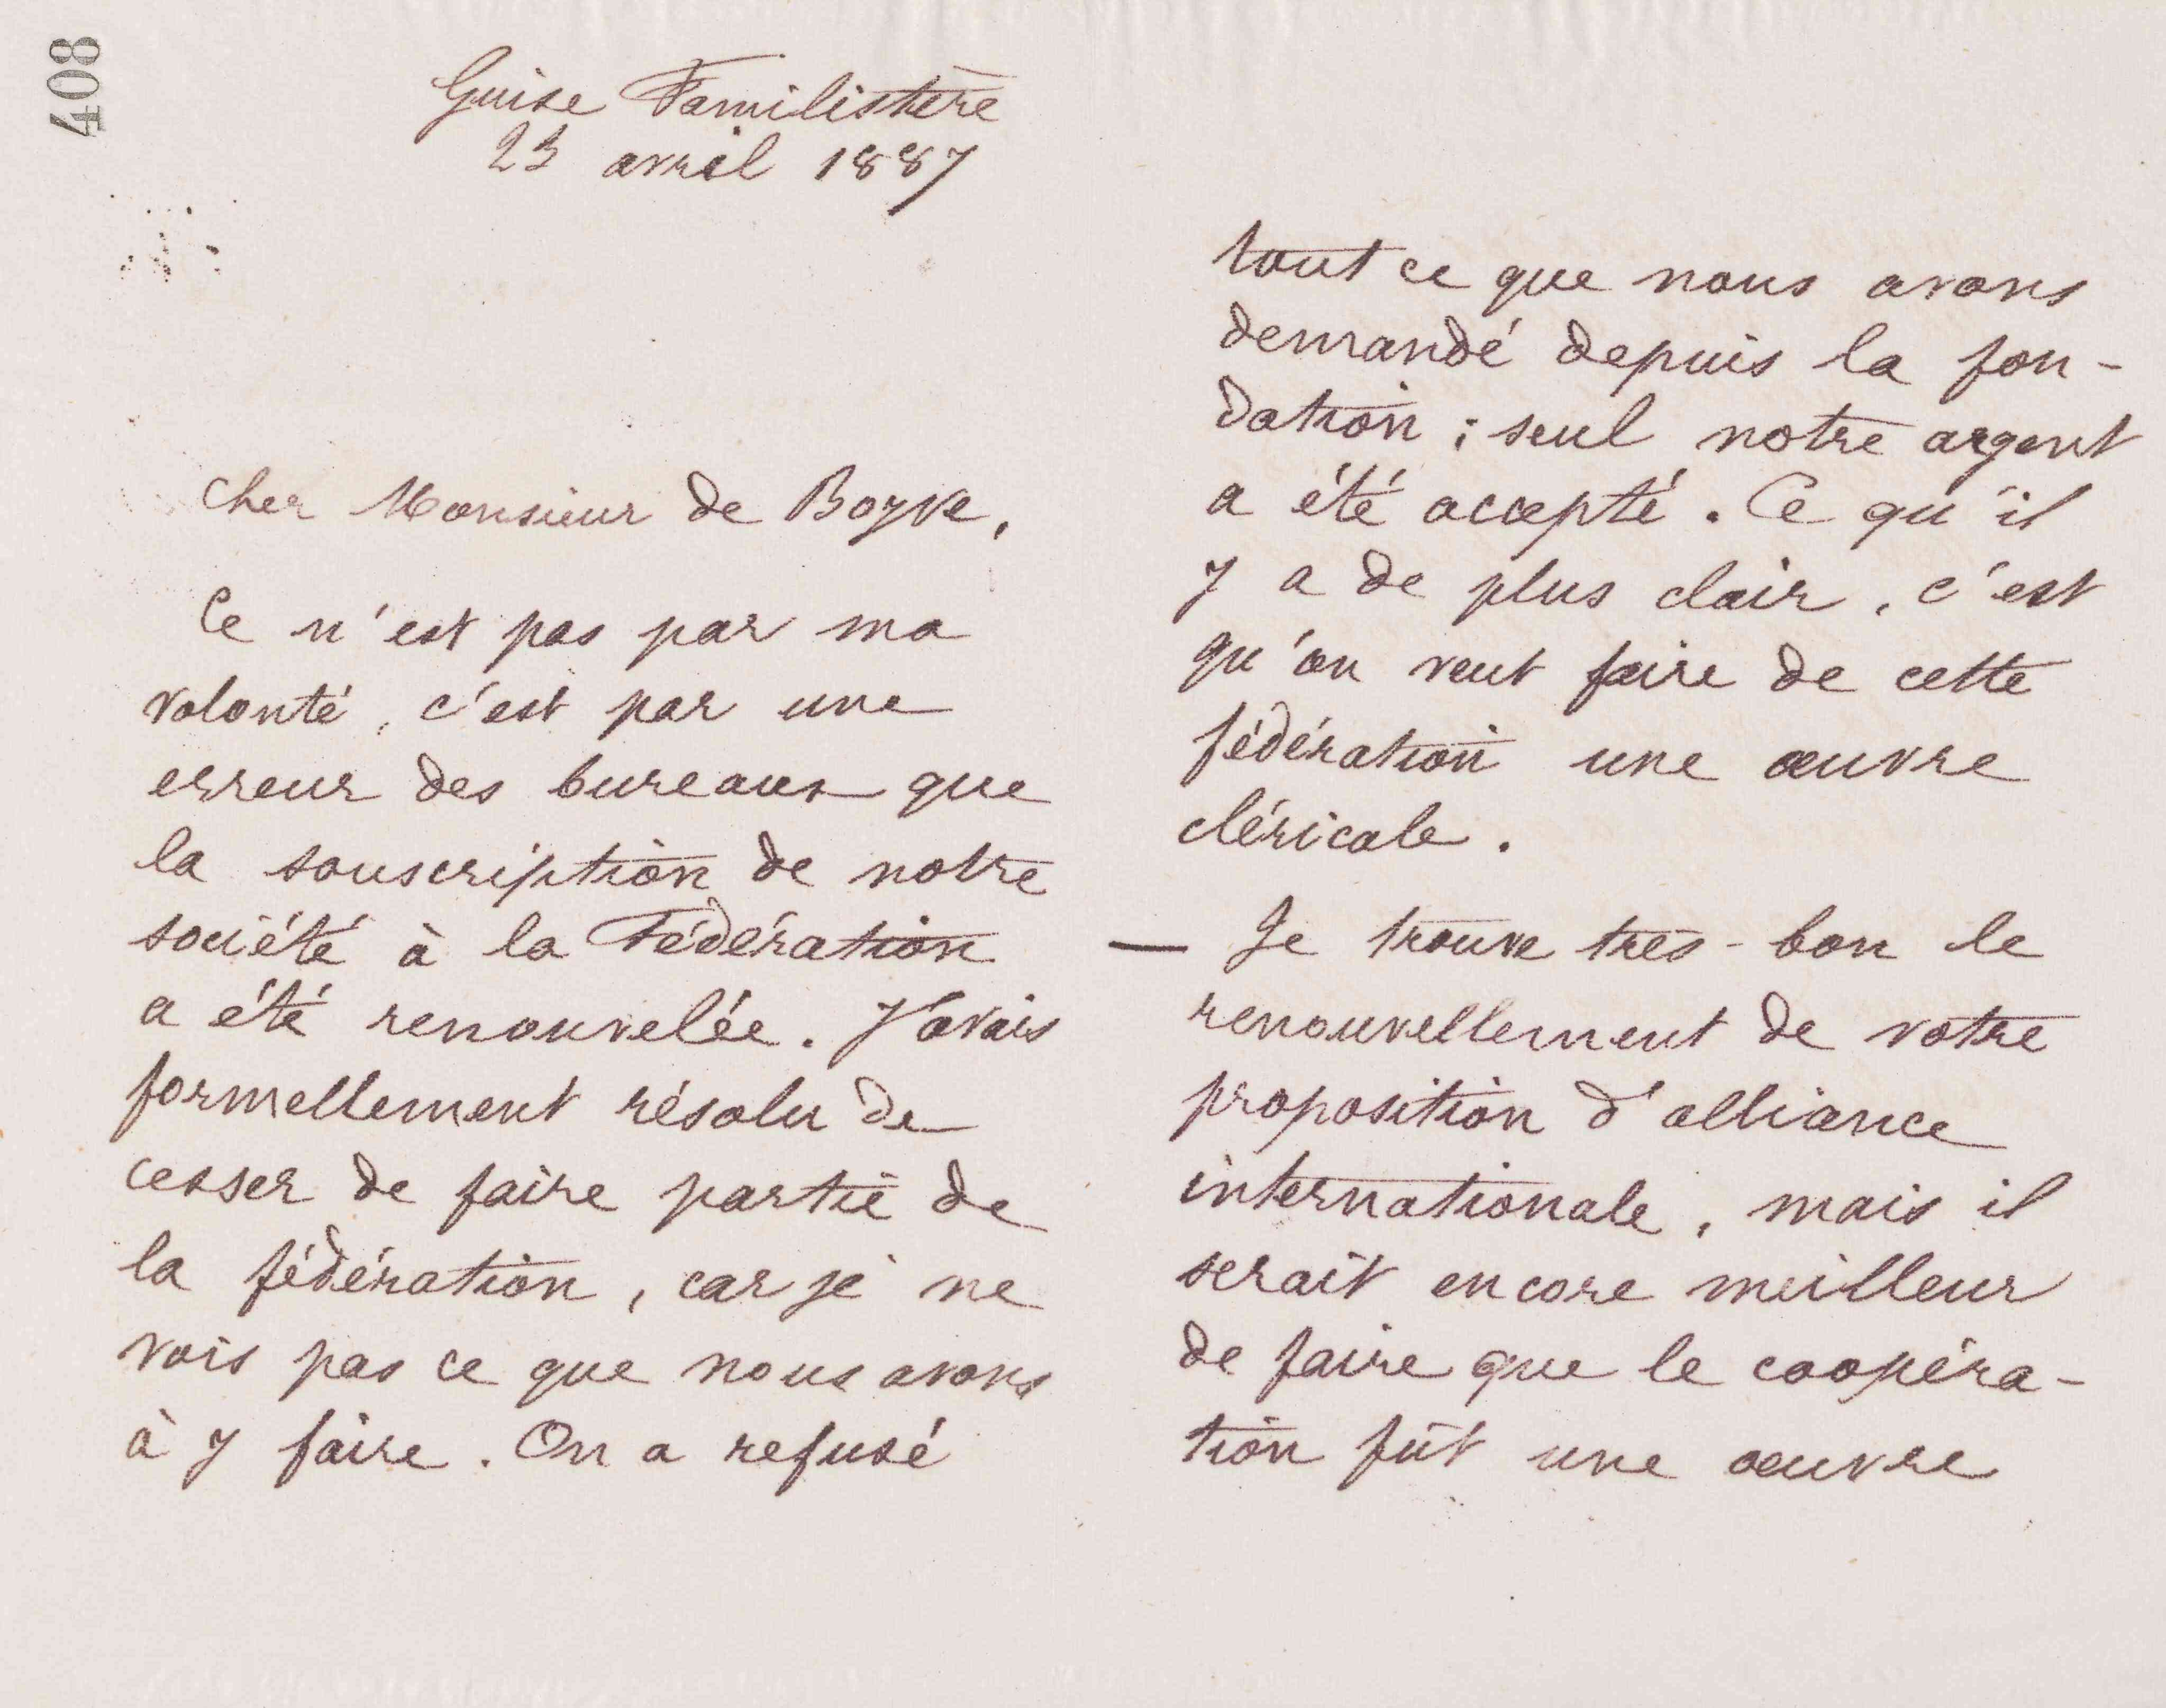 408
Guise Familistère
23 avril 1887
Cher Monsieur de Boyve,
Ce n'est pas par ma
volonté, c'est par une
erreur des bureaux que
la souscription de notre
société à la Fédération
a été renouvelée. J'avais
formellement résolu de
cesser de faire partie de
la fédération, car je ne
vois pas ce que nous avons
à y faire. On a refusé
tout ce que nous avons
demandé depuis la fon-
dation ; seul notre argent
a été accepté. Ce qu'il
y a de plus clair, c'est
qu'on veut faire de cette
fédération une œuvre
cléricale.
— Je trouve très-bon le
renouvellement de votre
proposition d'alliance
internationale, mais il
serait encore meilleur
de faire que le coopéra-
tion fût une œuvre